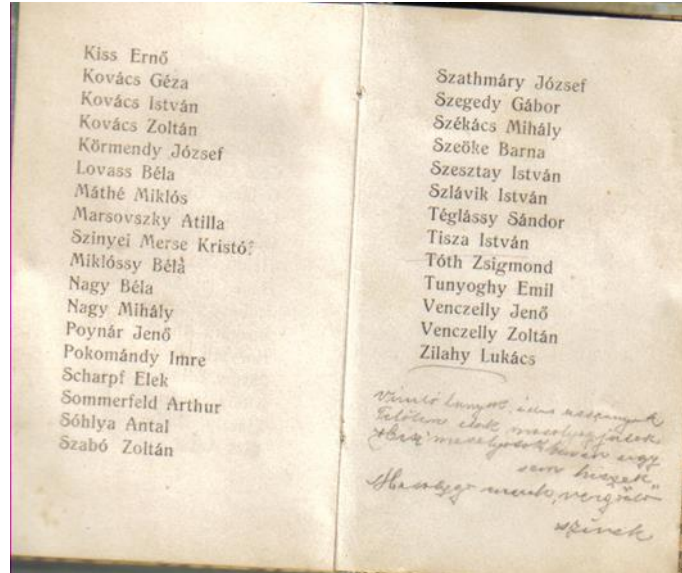 Kiss Ernő
Kovács Géza
Kovács István
Kovács Zoltán
Körmendy József
Lovass Béla
Máthé Miklós
Marsovszky Atilla
Szinyei Merse Kristóf
Miklóssy Béla
Nagy Béla
Nagy Mihály
Poynár Jenő
Pokomándy Imre
Scharpf Elek
Sommerfeld Arthur
Sóhlya Antal
Szabó Zoltán
Szathmáry József
Szegedy Gábor
Székács Mihály
Szeöke Barna
Szesztay István
Szlávik István
Téglássy Sándor
Tisza István
Tóth Zsigmond
Tunyoghy Emil
Venczelly Jenő
Venczelly Zoltán
Zilahy Lukács
sem hiszek"
szívek